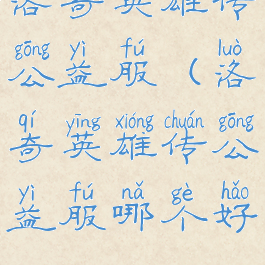 洛奇英雄传
gōng yì fú luò
公益服(洛
qí yīng xióng chuán gōng
奇英雄传公
yì fú nǎ gè hǎo
益服哪个好